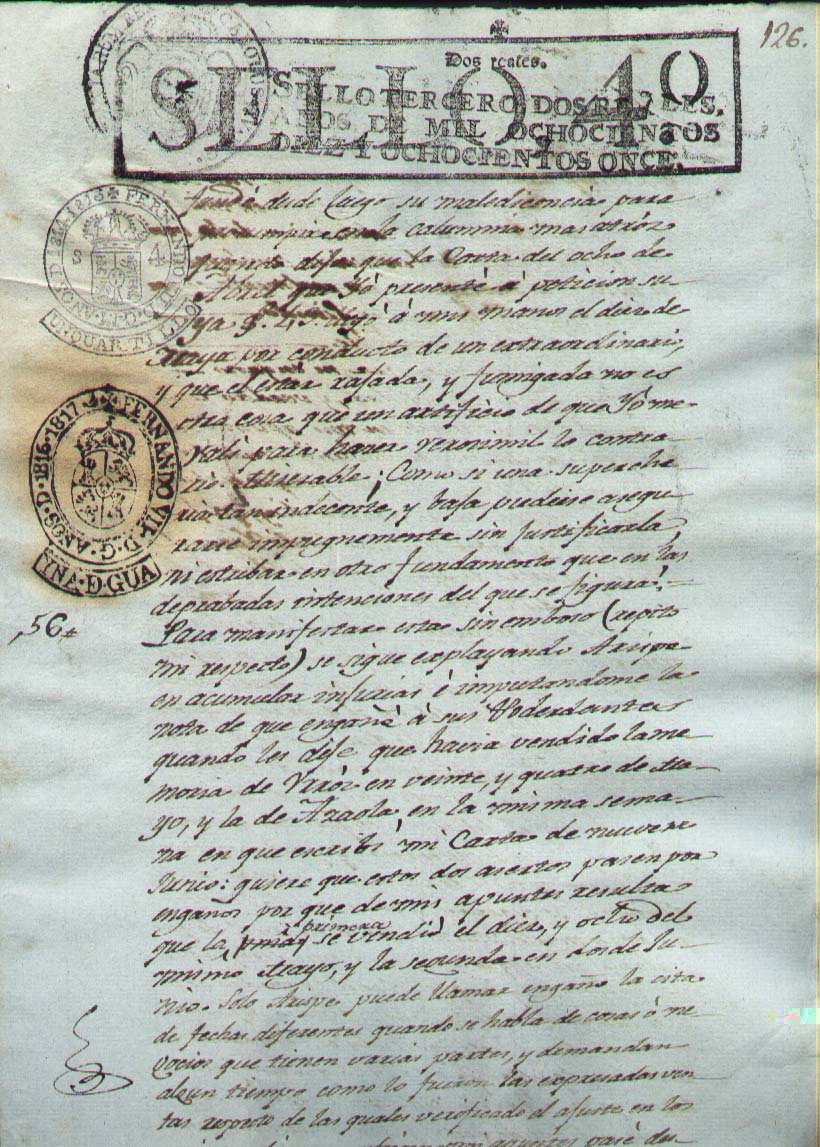 126.
Dos reales.
SELLO 4º
SELLO TERCERO DOS REALES,
AÑOS DE MIL OCHOCIENTOS
DIEZ Y OCHOCIENTOS ONCE.
FERNANDO VII D. G. AÑOS D 1814. 1815
S 4
UN QUARTILLO
FERNANDO VII. D. G. AÑOS. D. 1816. 1817
VNA. D. GUA
desde luego su maledicencia para
en la calumnia mas atroz
dise que la Carta del ocho de
Abril que Yó presenté á peticion su
ya llegó á mis manos el diez de
Mayo por conducto de un extraordinari,
y que el estar rasada, y fumigada no es
otra cosa que un artificio de que Yó me
vali para hacer verosimil lo contra
rio. Miserable; Como si una superche
ria tan indecente, y baja pudiese asegu
rarse impugnemente sin justificarla
ni estribar en otro fundamento que en las
depravadas intenciones del que se figura!
56
Para manifestar estas sin emboso (repito
mi respecto) se sigue explayando Arispe
en acumular inficias é imputandome la
nota de que engañé á sus Poderdantes
quando les dise que havia vendido la me
moria de en veinte, y quatro de Ma
yo, y la de Azaola, en la misma sema
na en que escribí mi Carta de nueve
Junio: quiere que estos dos asertos pasen por
engaños por que de mis apuntes resulta
que la primera se vendió el diez, y octo del
mismo Mayo, y la segunda en dos de Ju
nio. Solo Arispe puede llamar engaño la cita
de fechas diferentes quando se habla de cosas ó ne
gocios que tienen varias partes, y demandan
algun tiempo como lo fueron las expresadas ven
tas respecto de las quales verificado el ajuste en los